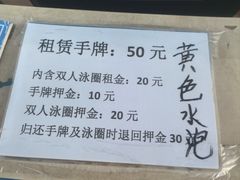 租赁手牌：50 元
内含双人泳圈租金：20 元
手牌押金：10 元
双人泳圈押金：20 元
归还手牌及泳圈时退回押金 30
黄色水池